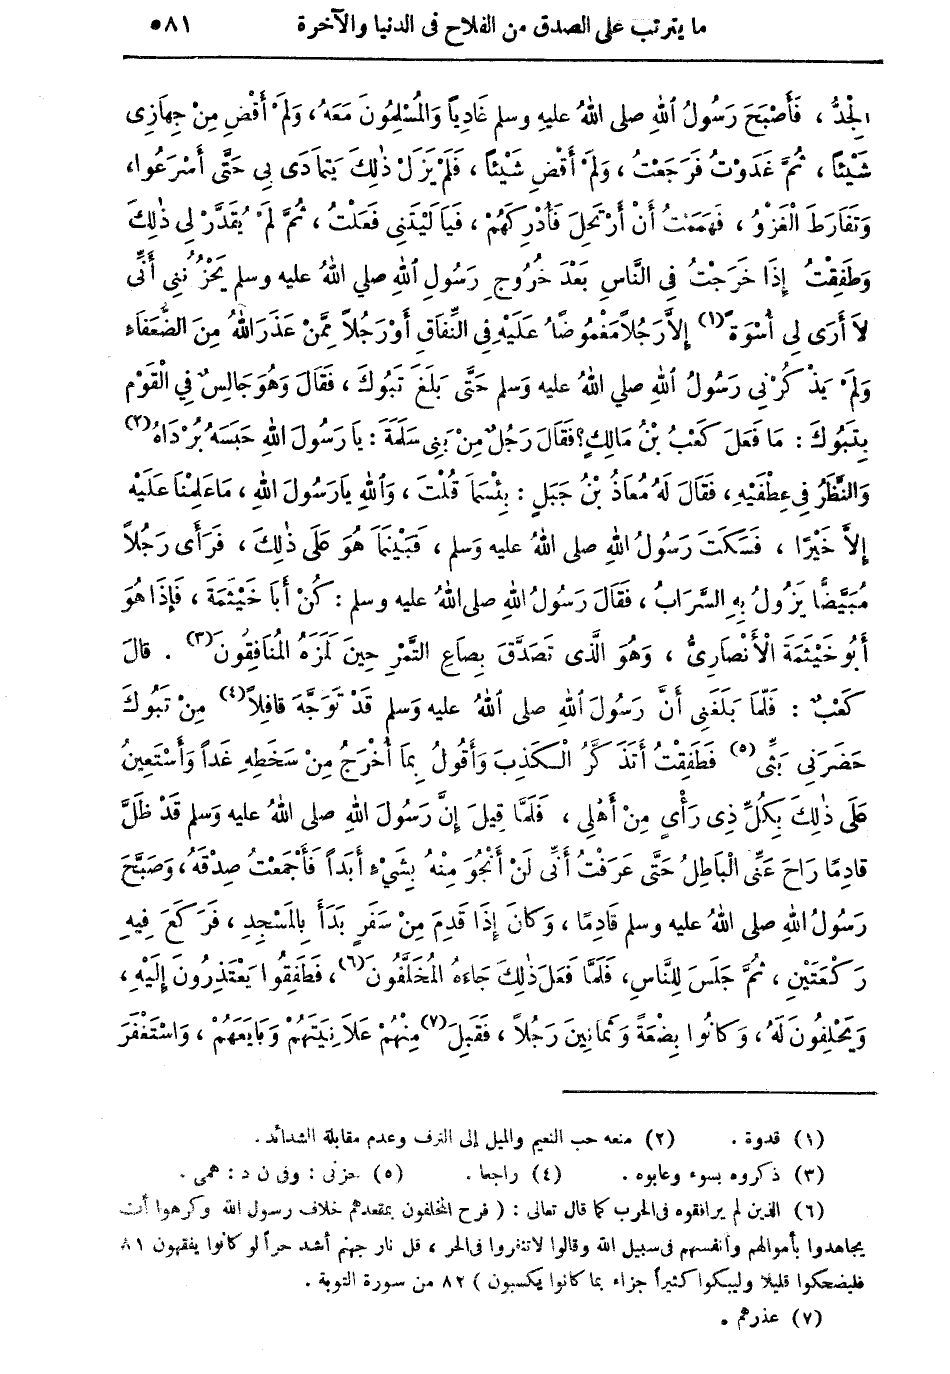 ما يترتب على الصدق من الفلاح فى الدنيا والآخرة ٥٨١
الْجِدُّ ، فَأَصْبَحَ رَسُولُ ٱللهِ صلى اللهُ عليهِ وسلم غَادِياً وَالْمُسْلِمُونَ مَعَهُ، وَلَمْ أَقْضِ مِنْ جِهَازِى
شَيْئاً ، ثُمَّ غَدَوْتُ فَرَجَعْتُ ، وَلَمْ أَقْضِ شَيْئاً ، فَلَمْ يَزَلْ ذٰلِكَ يَتَمَادَى بِي حَتَّى أَسْرَعُوا،
وَتَفَارَطَ الْغَزْوُ ، فَهَمَمْتُ أَنْ أَرْتَحِلَ فَأُدْرِكَهُمْ ، فَيَالَيْتَنِى فَعَلْتُ ، ثُمَّ لَمْ يُقَدَّرْ لِى ذٰلِكَ
وَطَفِقْتُ إِذَا خَرَجْتُ فِى النَّاسِ بَعْدَ خُرُوجِ رَسُولِ ٱللهِ صلى اللهُ عليه وسلم يَحْزُنُنِى أَنِّى
لاَ أَرَى لِى أُسْوَةً(١) إِلاَّ رَجُلاً مَغْمُوصًا عَلَيْهِ فِى النِّفَاقِ أَوْ رَجُلاً مِمَّنْ عَذَرَ اللهُ مِنَ الضُّعَفَاءِ
وَلَمْ يَذْكُرْنِى رَسُولُ ٱللهِ صلى اللهُ عليه وسلم حَتَّى بَلَغَ تَبُوكَ ، فَقَالَ وَهُوَ جَالِسٌ فِى الْقَوْمِ
بِتَبُوكَ : مَا فَعَلَ كَعْبُ بْنُ مَالِكٍ؟ فَقَالَ رَجُلٌ مِنْ بَنِى سَلَمَةَ : يَا رَسُولَ اللهِ حَبَسَهُ بُرْدَاهُ(٢)
وَالنَّظَرُ فِى عِطْفَيْهِ ، فَقَالَ لَهُ مُعَاذُ بْنُ جَبَلٍ : بِئْسَمَا قُلْتَ ، وَاللهِ يَارَسُولَ اللهِ ، مَاعَلِمْنَا عَلَيْهِ
إِلاَّ خَيْرًا ، فَسَكَتَ رَسُولُ اللهِ صلى اللهُ عليه وَسلم ، فَبَيْنَمَا هُوَ عَلَى ذٰلِكَ ، فَرَأَى رَجُلاً
مُبَيِّضًا يَزُولُ بِهِ السَّرَابُ ، فَقَالَ رَسُولُ اللهِ صلى اللهُ عليه وسلم : كُنْ أَبَا خَيْثَمَةَ ، فَإِذَا هُوَ
أَبُو خَيْثَمَةَ الْأَنْصَارِىُّ ، وَهُوَ الَّذِى تَصَدَّقَ بِصَاعِ التَّمْرِ حِينَ لَمَزَهُ الْمُنَافِقُونَ(٣) . قالَ
كَعْبٌ : فَلَمَّا بَلَغَنِى أَنَّ رَسُولَ ٱللهِ صلى اللهُ عليه وسلم قَدْ تَوَجَّهَ قَافِلاً(٤) مِنْ تَبُوكَ
حَضَرَنِى بَثِّى(٥) فَطَفِقْتُ أَتَذَكَّرُ الْكَذِبَ وَأَقُولُ بِمَا أَخْرُجُ مِنْ سَخَطِهِ غَداً وَأَسْتَعِينُ
عَلَى ذٰلِكَ بِكُلِّ ذِى رَأْىٍ مِنْ أَهْلِى ، فَلَمَّا قِيلَ إِنَّ رَسُولَ اللهِ صلى اللهُ عليه وسلم قَدْ ظَلَّ
قادِمًا رَاحَ عَنِّى الْبَاطِلُ حَتَّى عَرَفْتُ أَنِّى لَنْ أَنْجُوَ مِنْهُ بِشَيْءٍ أَبَداً فَأَجْمَعْتُ صِدْقَهُ، وَصَبَّحَ
رَسُولُ اللهِ صلى اللهُ عليه وسلم قَادِمًا ، وَكَانَ إِذَا قَدِمَ مِنْ سَفَرٍ بَدَأَ بِالْمَسْجِدِ ، فَرَكَعَ فِيهِ
رَكْعَتَيْنِ ، ثُمَّ جَلَسَ لِلنَّاسِ، فَلَمَّا فَعَلَ ذٰلِكَ جَاءَهُ الْمُخَلَّفُونَ(٦)، فَطَفِقُوا يَعْتَذِرُونَ إِلَيْهِ ،
وَيَحْلِفُونَ لَهُ ، وَكَانُوا بِضْعَةً وَثَمَانِينَ رَجُلاً ، فَقَبِلَ(٧) مِنْهُمْ عَلاَنِيَتَهُمْ وَبَايَعَهُمْ ، وَاسْتَغْفَرَ
(١) قدوة . (٢) منعه حب النعيم والميل إلى الترف وعدم مقابلة الشدائد .
(٣) ذكروه بسوء وعابوه . (٤) راجعا . (٥) حزنى : وفى ن د : همى .
(٦) الذين لم يرافقوه فى الحرب كما قال تعالى : ( فرح المخلفون بمقعدهم خلاف رسول الله وكرهوا أن
يجاهدوا بأموالهم وأنفسهم فى سبيل الله وقالوا لاتنفروا فى الحر ، قل نار جهنم أشد حراً لو كانوا يفقهون ٨١
فليضحكوا قليلا وليبكوا كثيراً جزاء بما كانوا يكسبون ) ٨٢ من سورة التوبة .
(٧) عذرهم .